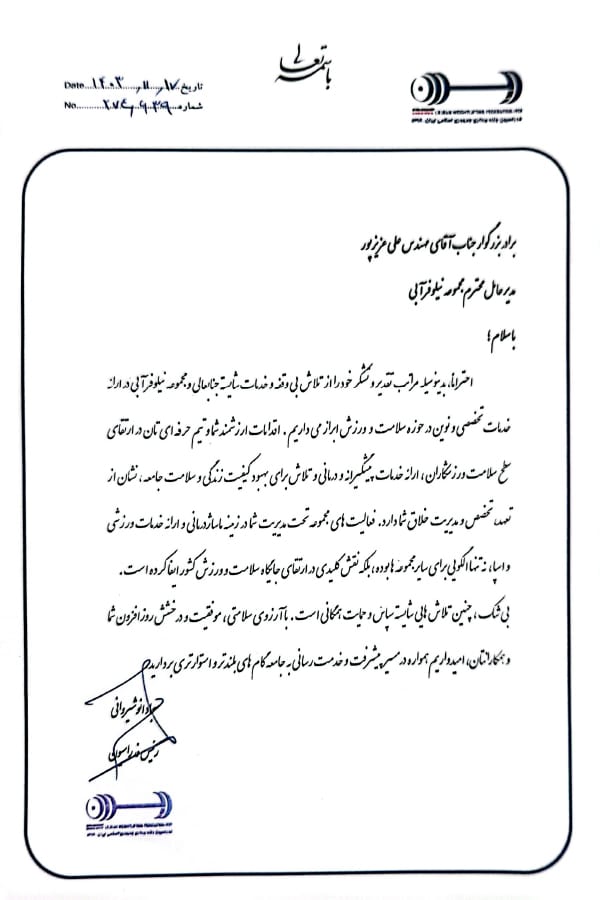 باسمه تعالی
تاریخ ۱۴۰۳/۱۱/۱۷ Date
شماره No.
I.R.IRAN WEIGHTLIFTING FEDERATION
فدراسیون وزنه برداری جمهوری اسلامی ایران
برادر بزرگوار جناب آقای مهندس علی عزیزپور
مدیرعامل محترم مجموعه نیلوفر آبی
باسلام؛
احتراماً، بدینوسیله مراتب تقدیر و تشکر خود را از تلاش بی وقفه و خدمات شایسته جنابعالی و مجموعه نیلوفر آبی در ارائه
خدمات تخصصی و نوین در حوزه سلامت و ورزش ابراز می داریم. اقدامات ارزشمند شما و تیم حرفه ای تان در ارتقای
سطح سلامت ورزشکاران، ارائه خدمات پیشگیرانه و درمانی و تلاش برای بهبود کیفیت زندگی و سلامت جامعه، نشان از
تعهد، تخصص و مدیریت خلاق شما دارد. فعالیت های مجموعه تحت مدیریت شما در زمینه ماساژ درمانی و ارائه خدمات ورزشی
و اسپا، نه تنها الگویی برای سایر مجموعه ها بوده، بلکه نقش کلیدی در ارتقای جایگاه سلامت و ورزش کشور ایفا کرده است.
بی شک، چنین تلاش هایی شایسته سپاس و حمایت همگانی است. با آرزوی سلامتی، موفقیت و درخشش روزافزون شما
و همکارانتان، امیدواریم همواره در مسیر پیشرفت و خدمت رسانی به جامعه گام های بلندتر و استوارتری بردارید.
سجاد انوشیروانی
رئیس فدراسیون
I.R.IRAN WEIGHTLIFTING FEDERATION
فدراسیون وزنه برداری جمهوری اسلامی ایران